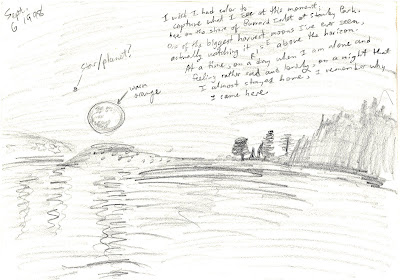 Sept.
6 1998
I wish I had color to
capture what I see at this moment,
here on the shore of Burrard Inlet at Stanley Park.
One of the biggest harvest moons I've ever seen,
actually watching it just above the horizon.
At a time, on a day when I am alone and
feeling rather sad and lonely, on a night that
I almost stayed home, I remember why
I came here.
star/planet?
warm
orange